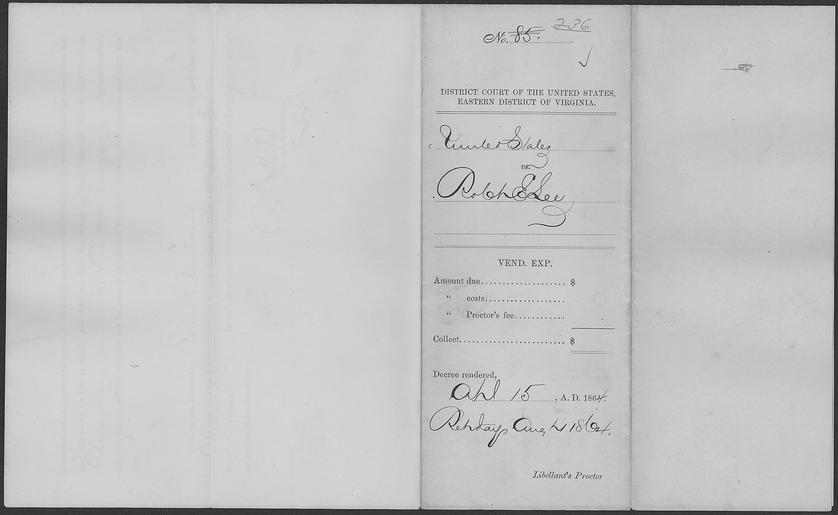 236
No. 85.
DISTRICT COURT OF THE UNITED STATES,
EASTERN DISTRICT OF VIRGINIA.
United States
vs.
Robt E Lee
VEND. EXP.
Amount due.................... $
" costs...................
" Proctor's fee............
Collect......................... $
Decree rendered,
Apl 15, A. D. 1864.
Retday Aug 1864.
Libellant's Proctor